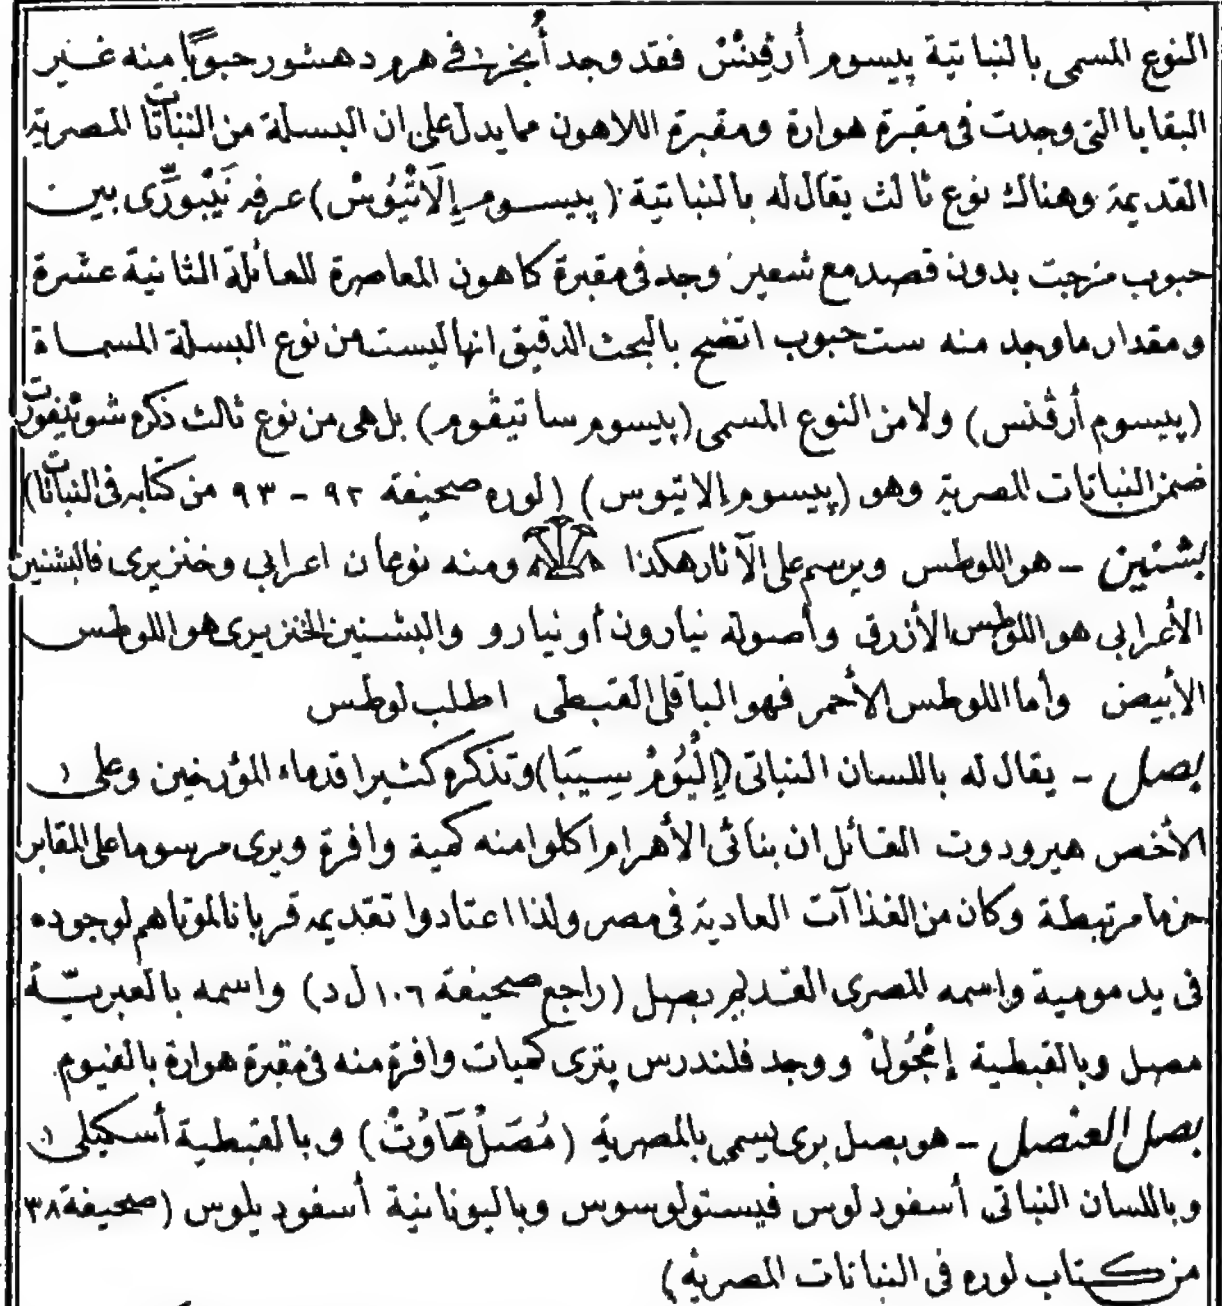 النوع المسمى بالنباتية پيسوم أرڤِنْسْ فقد وجد أُنجَر في هرم دهشور حبوبًا منه غير
البقايا التى وجدت فى مقبرة هوارة ومقبرة اللاهون مما يدل على ان البسلة من النباتات المصرية
القديمة وهناك نوع ثالث يقال له بالنباتية (پيسوم إلَاتْيُوسْ) عرفه نَيْبورِّى بين
حبوب مزجت بدون قصد مع شعير وجد فى مقبرة كاهون المعاصرة للعائلة الثانية عشرة
ومقدار ما وجد منه ست حبوب اتضح بالبحث الدقيق انها ليست من نوع البسلة المسماة
(پيسوم أرڤنس) ولا من النوع المسمى (پيسوم ساتيڤوم) بل هى من نوع ثالث ذكره شوئينفورت
ضمن النباتات المصرية وهو (پيسوم إلاتيوس) (لوره صحيفة ٩٢ - ٩٣ من كتابه فى النباتات)
بشنين - هو اللوطس ويرسم على الآثار هكذا ومنه نوعان اعرابي وخنزيرى فالبشنين
الأعرابى هو اللوطس الأزرق وأصوله نيارون أو نيارو والبشنين الخنزيرى هو اللوطس
الأبيض وأما اللوطس الأحمر فهو الباقلى القبطى اطلب لوطس
بصل - يقال له باللسان النباتى (إِلْيُومْ سِيبَا) وتذكره كثيرا قدماء المؤرخين وعلى
الأخص هيرودوت القائل ان بنائى الأهرام اكلوا منه كمية وافرة ويرى مرسوما على المقابر
حزما مرتبطة وكان من الغذاآت العادية فى مصر ولذا اعتادوا تقديمه قربانا لموتاهم لوجوده
فى يد مومية واسمه المصرى القديم بصل (راجع صحيفة ١٠٦ ل د) واسمه بالعبريّة
مصل وبالقبطية إمْجُولْ ووجد فلندرس پترى كميات وافرة منه فى مقبرة هوارة بالفيوم
بصل العنصل - هو بصل برى يسمى بالمصرية (مُصَلْ هَاوُتْ) وبالقبطية أسكيلى
وباللسان النباتى أسفودلوس فيستولوسوس وباليونانية أسفوديلوس (صحيفة ٣٨
من كتاب لوره فى النباتات المصرية)